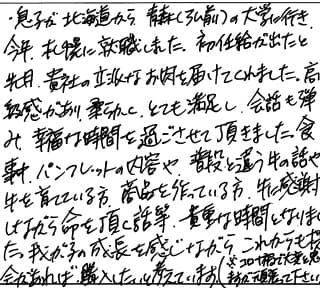 ・息子が北海道から青森(弘前)の大学に行き、
今年、札幌に就職しました。初任給が出たと
先月、貴社の立派なお肉を届けてくれました。高
級感があり、柔らかく、とても満足し、会話も弾
み、幸福な時間を過ごさせて頂きました。食
事中、パンフレットの内容や、普段と違う牛の話や
牛を育てている方、商品を作っている方、牛に感謝
しながら命を頂く話等、貴重な時間となりまし
た。我が子の成長を感じながら、これからも機
会があれば購入したいと考えています。